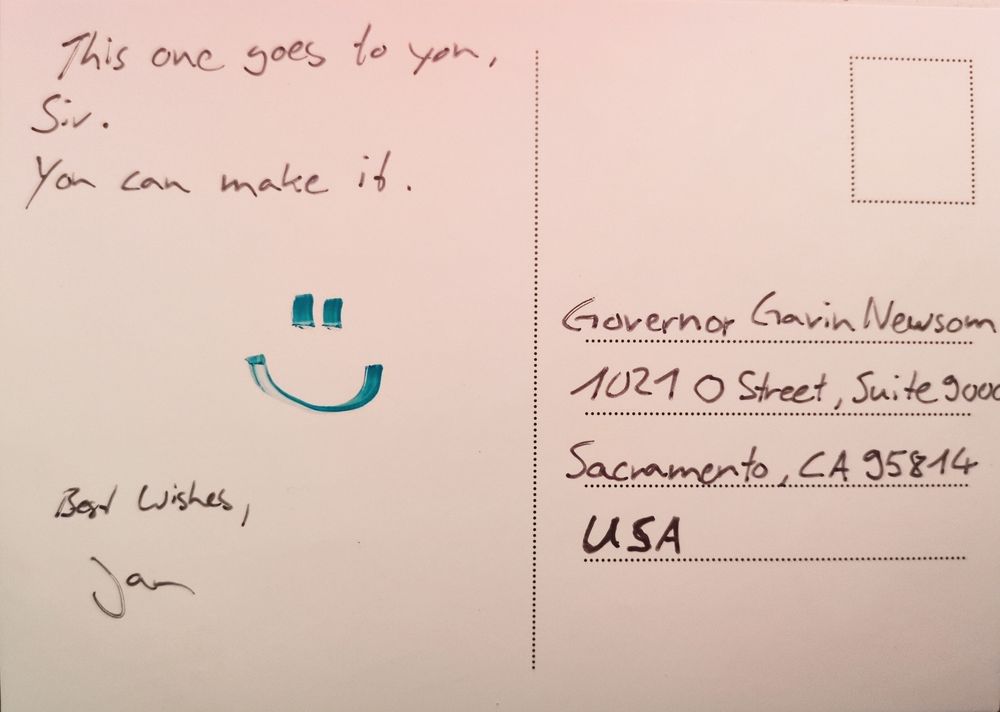 This one goes to you,
Sir.
You can make it.
Best Wishes,
Jan
Governor Gavin Newsom
1021 O Street, Suite 9000
Sacramento, CA 95814
USA